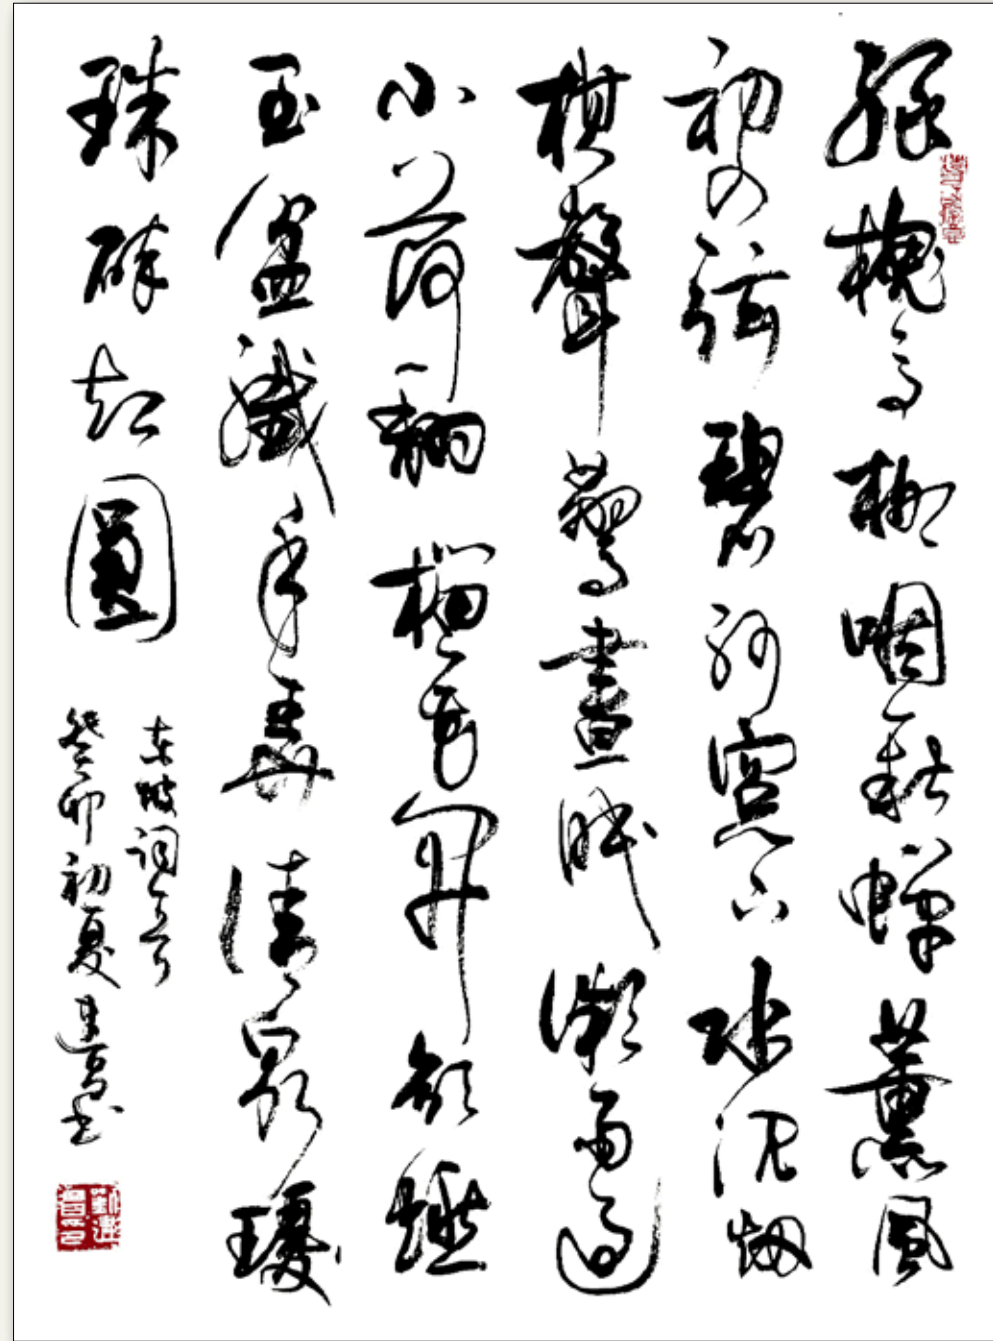 綠槐高柳咽新蟬薰風
初入弦碧紗窗下水沈烟
棋聲驚晝眠微雨過
小荷翻榴花開欲燃
玉盆纖手弄清泉瓊
珠碎却圓
东坡词一首
癸卯初夏建书